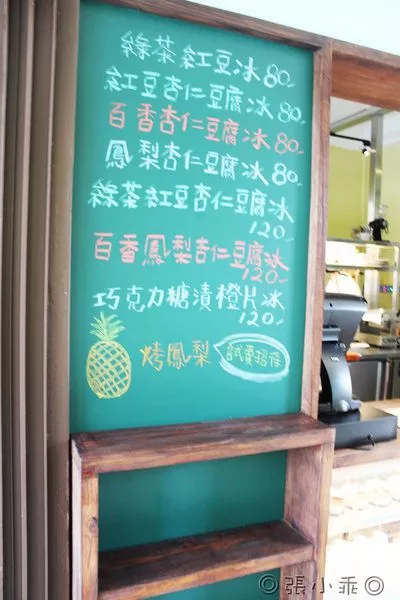 綠茶紅豆冰80
紅豆杏仁豆腐冰80
百香杏仁豆腐冰80
鳳梨杏仁豆腐冰80
綠茶紅豆杏仁豆腐冰
120
百香鳳梨杏仁豆腐冰
120
巧克力糖漬橙片冰
120
烤鳳梨 試賣招待
◎張小乖◎